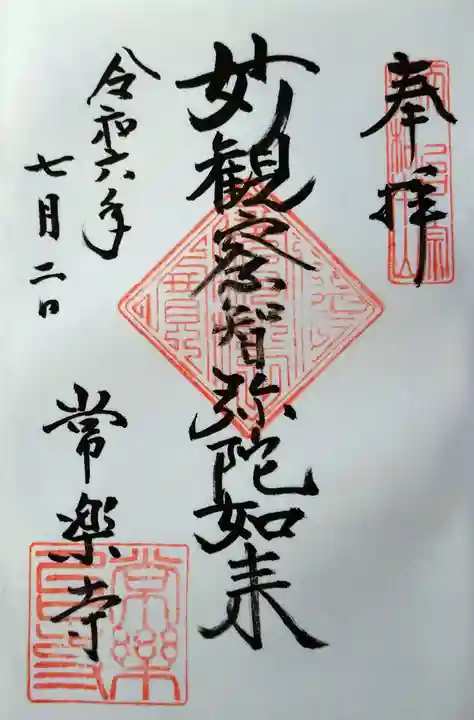 奉拝
妙観察智弥陀如来
令和六年
七月二日
常楽寺
常樂